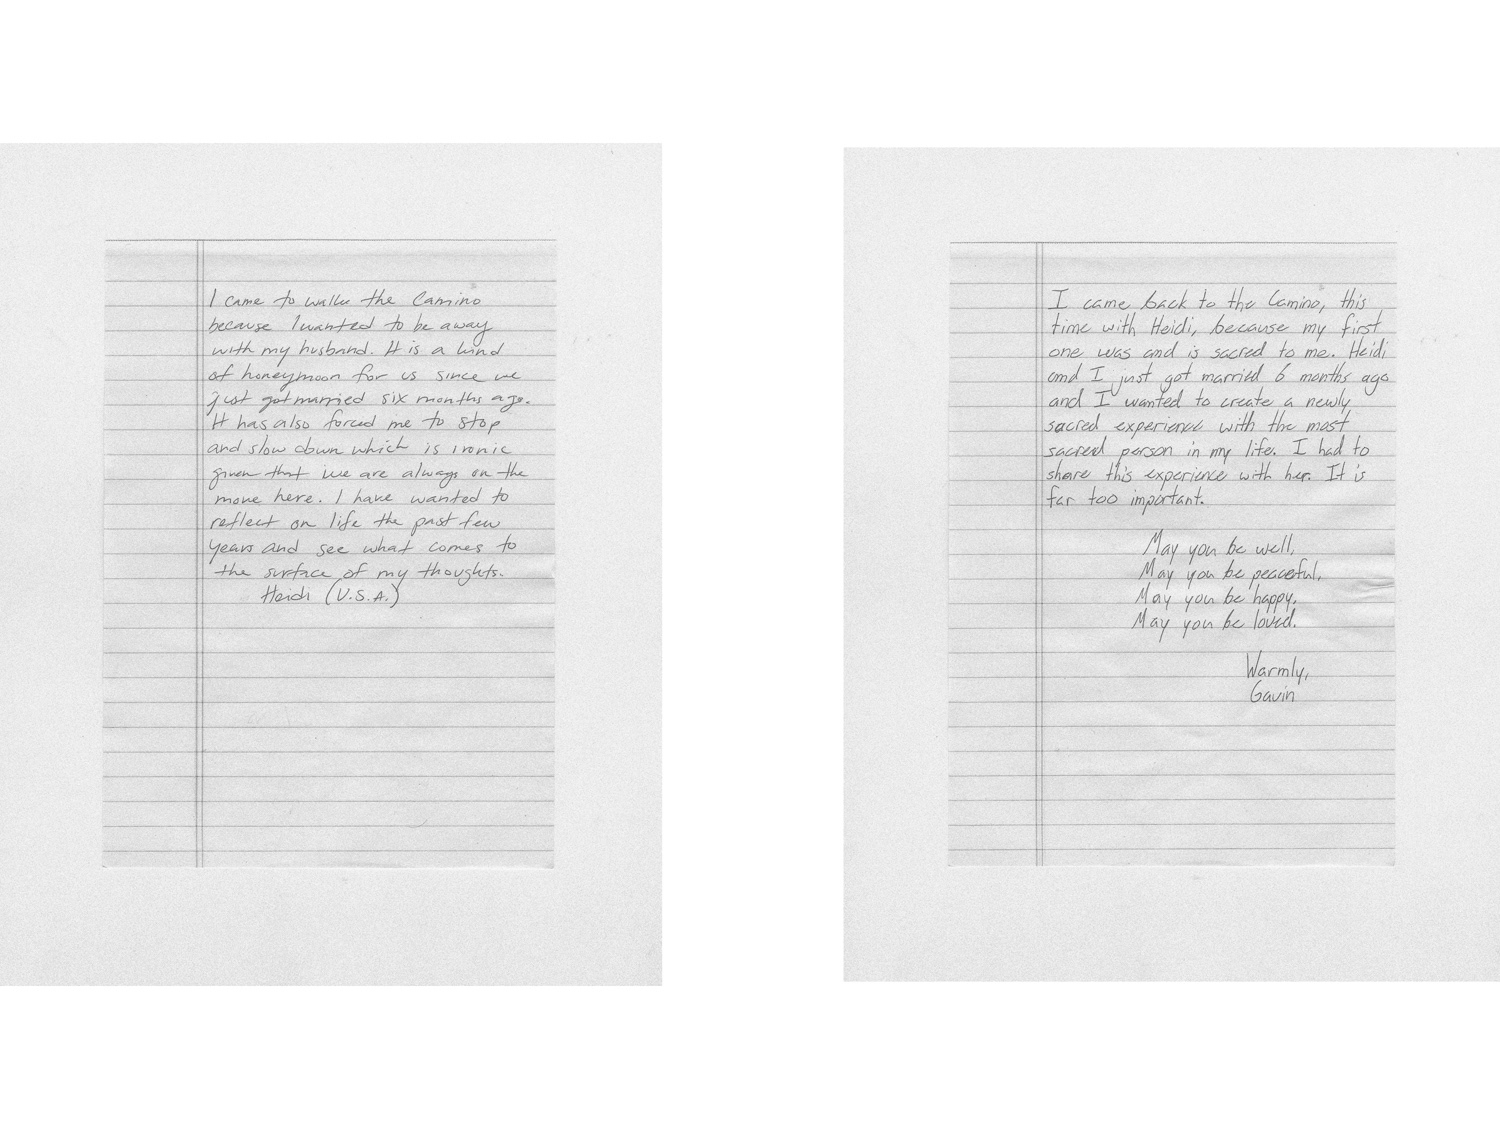 I came to walk the Camino
because I wanted to be away
with my husband. It is a kind
of honeymoon for us since we
just got married six months ago.
It has also forced me to stop
and slow down which is ironic
given that we are always on the
move here. I have wanted to
reflect on life the past few
years and see what comes to
the surface of my thoughts.
Heidi (U.S.A.)
I came back to the Camino, this
time with Heidi, because my first
one was and is sacred to me. Heidi
and I just got married 6 months ago
and I wanted to create a newly
sacred experience with the most
sacred person in my life. I had to
share this experience with her. It is
far too important.
May you be well,
May you be peaceful,
May you be happy,
May you be loved.
Warmly,
Gavin